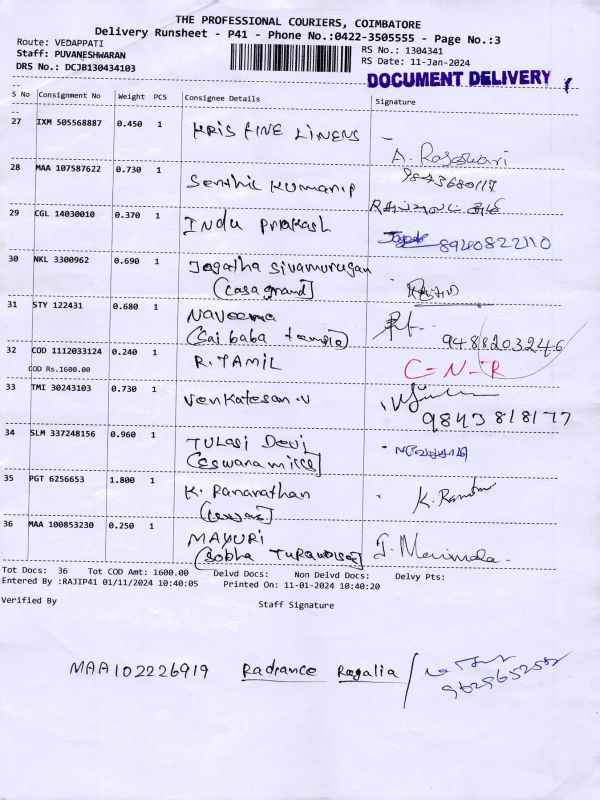 THE PROFESSIONAL COURIERS, COIMBATORE
Delivery Runsheet - P41 - Phone No.:0422-3505555 - Page No.:3
Route: VEDAPPATI
Staff: PUVANESHWARAN
DRS No.: DCJB130434103
RS No.: 1304341
RS Date: 11-Jan-2024
DOCUMENT DELIVERY
S No Consignment No Weight PCS Consignee Details Signature
27 IXM 505568887 0.450 1 KRIS FINE LINENS
A. Rajeswari
28 MAA 107587622 0.730 1 Senthil Kumar 9843680117
29 CGL 14030010 0.370 1 Indu Prakash 8940822110
30 NKL 3300962 0.690 1 Jagatha Sivamurugan
(Casa grand)
31 STY 122431 0.680 1 Naveena
(Sai baba temple) 9488203246
32 COD 1112033124 0.240 1 R. TAMIL C-N-R
COD Rs.1600.00
33 TMI 30243103 0.730 1 Venkatesan.V
9843818177
34 SLM 337248156 0.960 1 TULASI DEVI
(Eswana mills)
35 PGT 6256653 1.800 1 K. Ranarathan
36 MAA 100853230 0.250 1 MAYURI
(Sobha Turquoise)
Tot Docs: 36 Tot COD Amt: 1600.00 Delvd Docs: Non Delvd Docs: Delvy Pts:
Entered By :RAJIP41 01/11/2024 10:40:05 Printed On: 11-01-2024 10:40:20
Verified By Staff Signature
MAA102226919 Radiance Regalia /
9629652582